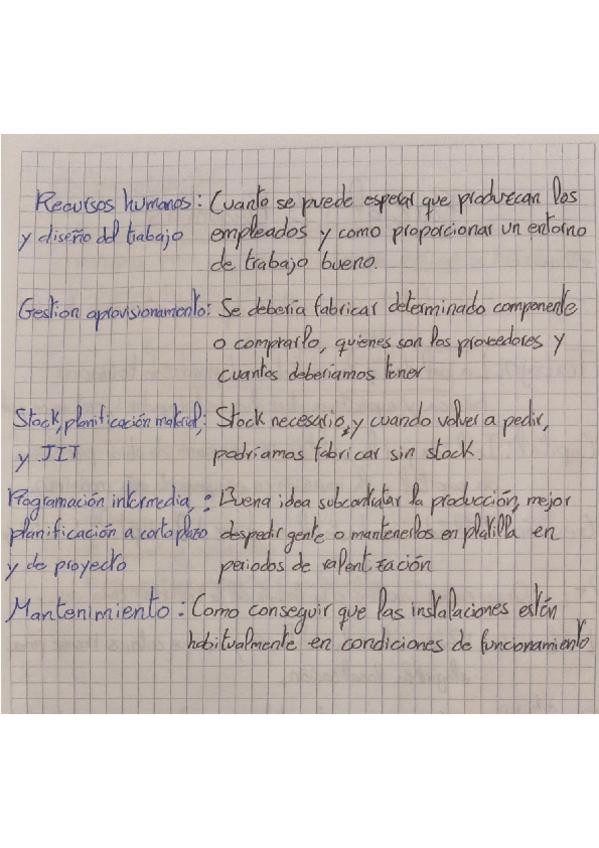 Recursos humanos: Cuanto se puede esperar que produzcan los
y diseño del trabajo empleados y como proporcionar un entorno
de trabajo bueno.
Gestion aprovisionamento: Se debería fabricar determinado componente
o comprarlo, quienes son los proveedores y
cuantos deberíamos tener
Stock, planificación material, : Stock necesario, y cuando volver a pedir,
y JIT podríamos fabricar sin stock.
Programación intermedia, : Buena idea subcontratar la producción, mejor
planificación a corto plazo despedir gente o mantenerlos en platilla en
y de proyecto periodos de
Mantenimiento: Como conseguir que las instalaciones estén
habitualmente en condiciones de funcionamiento